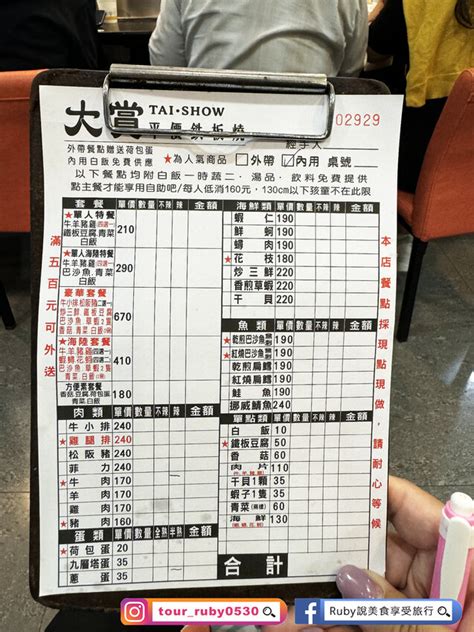 大賞 TAI·SHOW
平價鉄板燒
02929
外帶餐點贈送荷包蛋
內用白飯免費供應
★為人氣商品 外帶 內用 桌號
經手人
以下餐點均附白飯一時蔬二．湯品．飲料免費提供
點主餐才能享用自助吧/每人低消160元，130cm以下孩童不在此限
滿五百元可外送
本店餐點採現點現做，請耐心等候
套餐 單價 數量 不辣 辣 金額
★單人特餐
牛羊豬雞
鐵板豆腐.青菜
白飯
210
★單人海陸特餐
牛羊豬雞
巴沙魚.青菜
白飯
290
豪華套餐
牛小排松阪豬
炒三鮮 鐵板豆腐
巴沙魚 草蝦2隻
香菇 青菜 白飯
670
★海陸套餐
牛羊豬雞
蝦蟳花蚵
巴沙魚.草蝦
香菇 青菜 白飯
410
方便素套餐
香菇.豆腐.荷包蛋
青菜.白飯
180
肉類 單價 數量 不辣 辣 金額
牛小排 240
★雞腿排 240
松阪豬 240
菲力 240
★牛肉 170
羊肉 170
雞肉 170
★豬肉 160
蛋類 單價 數量 全熟 半熟 金額
★荷包蛋 20
九層塔蛋 35
蔥蛋 35
海鮮類 單價 數量 不辣 辣 金額
蝦仁 190
鮮蚵 190
蟳肉 190
★花枝 180
炒三鮮 220
香煎草蝦 220
干貝 190
魚類 單價 數量 不辣 辣 金額
★乾煎巴沙魚 190
★紅燒巴沙魚 190
乾煎扁鱈 190
紅燒扁鱈 190
鮭魚 190
挪威鯖魚 190
單點類 單價 數量 不辣 辣 金額
白飯 10
★鐵板豆腐 50
香菇 60
肉片 110
干貝1顆 35
蝦子1隻 35
青菜 35
海鮮 130
合計
tour_ruby0530
Ruby說美食享受旅行